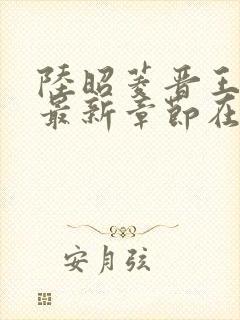 陸昭菱晋王
最新章節在
安月弦